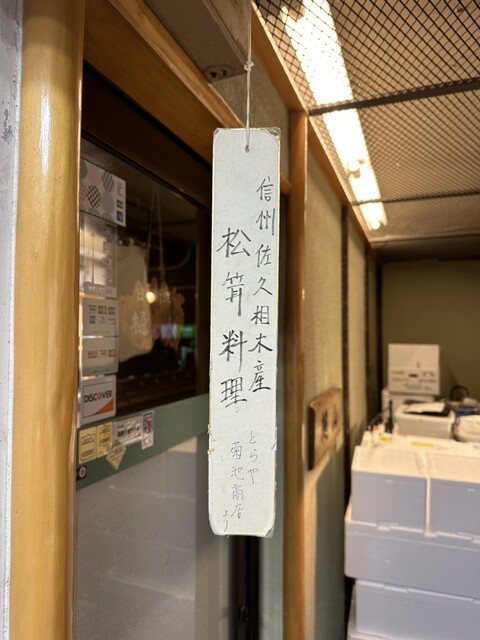 信州佐久相木産
松茸料理
とらや
菊池商店
より
DISCOVER